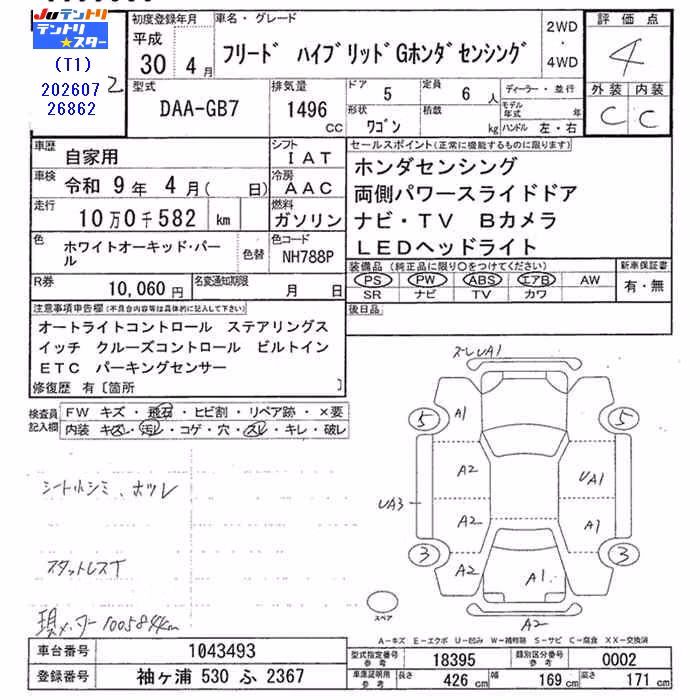 Juテントリ
テントリ
★スター
(T1)
202607
26862
2
初度登録年月
平成
30 4月
車名・グレード
フリード ハイブリッドGホンダセンシング
2WD
・
4WD
評価点
4
外装 内装
C C
型式
DAA-GB7
排気量
1496
CC
ドア 5
定員 6 人
形状 ワゴン
積載 kg
ディーラー・並行
モデル年式 年
ハンドル 左・右
車歴 自家用
シフト IAT
車検 令和 9年 4月( 日)
冷房 AAC
走行 10万0千582 km
燃料 ガソリン
色 ホワイトオーキッド・パール
色替
色コード NH788P
R券 10,060円
名変通知期限 月 日
セールスポイント(正常に機能するものに限ります)
ホンダセンシング
両側パワースライドドア
ナビ・TV Bカメラ
LEDヘッドライト
装備品(純正品に限り○をつけてください)
PS PW ABS エアB AW
SR ナビ TV カワ
新車保証書
有・無
後日品
注意事項申告欄(不具合内容等は具体的に記入して下さい)
オートライトコントロール ステアリングス
イッチ クルーズコントロール ビルトイン
ETC パーキングセンサー
修復歴 有〔箇所 〕
検査員記入欄
FW キズ・飛石・ヒビ割・リペア跡・×要
内装 キズ・汚れ・コゲ・穴・スレ・キレ・破レ
シート小シミ、ホツレ
スタットレスT
現メーター100584km
ズレUA1
5
A1
5
A2
UA1
UA3
A2
A1
3
A2
A1
3
A2
スペア
A-キズ E-エクボ U-凹み W-補修跡 S-サビ C-腐食 XX-交換済
車台番号 1043493
登録番号 袖ヶ浦 530 ふ 2367
型式指定番号 参考 18395
類別区分番号 参考 0002
車庫証明用 参考 長さ 426 cm 幅 169 cm 高さ 171 cm